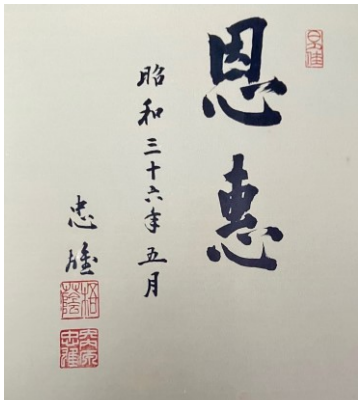 恩恵
昭和三十六年五月
忠雄